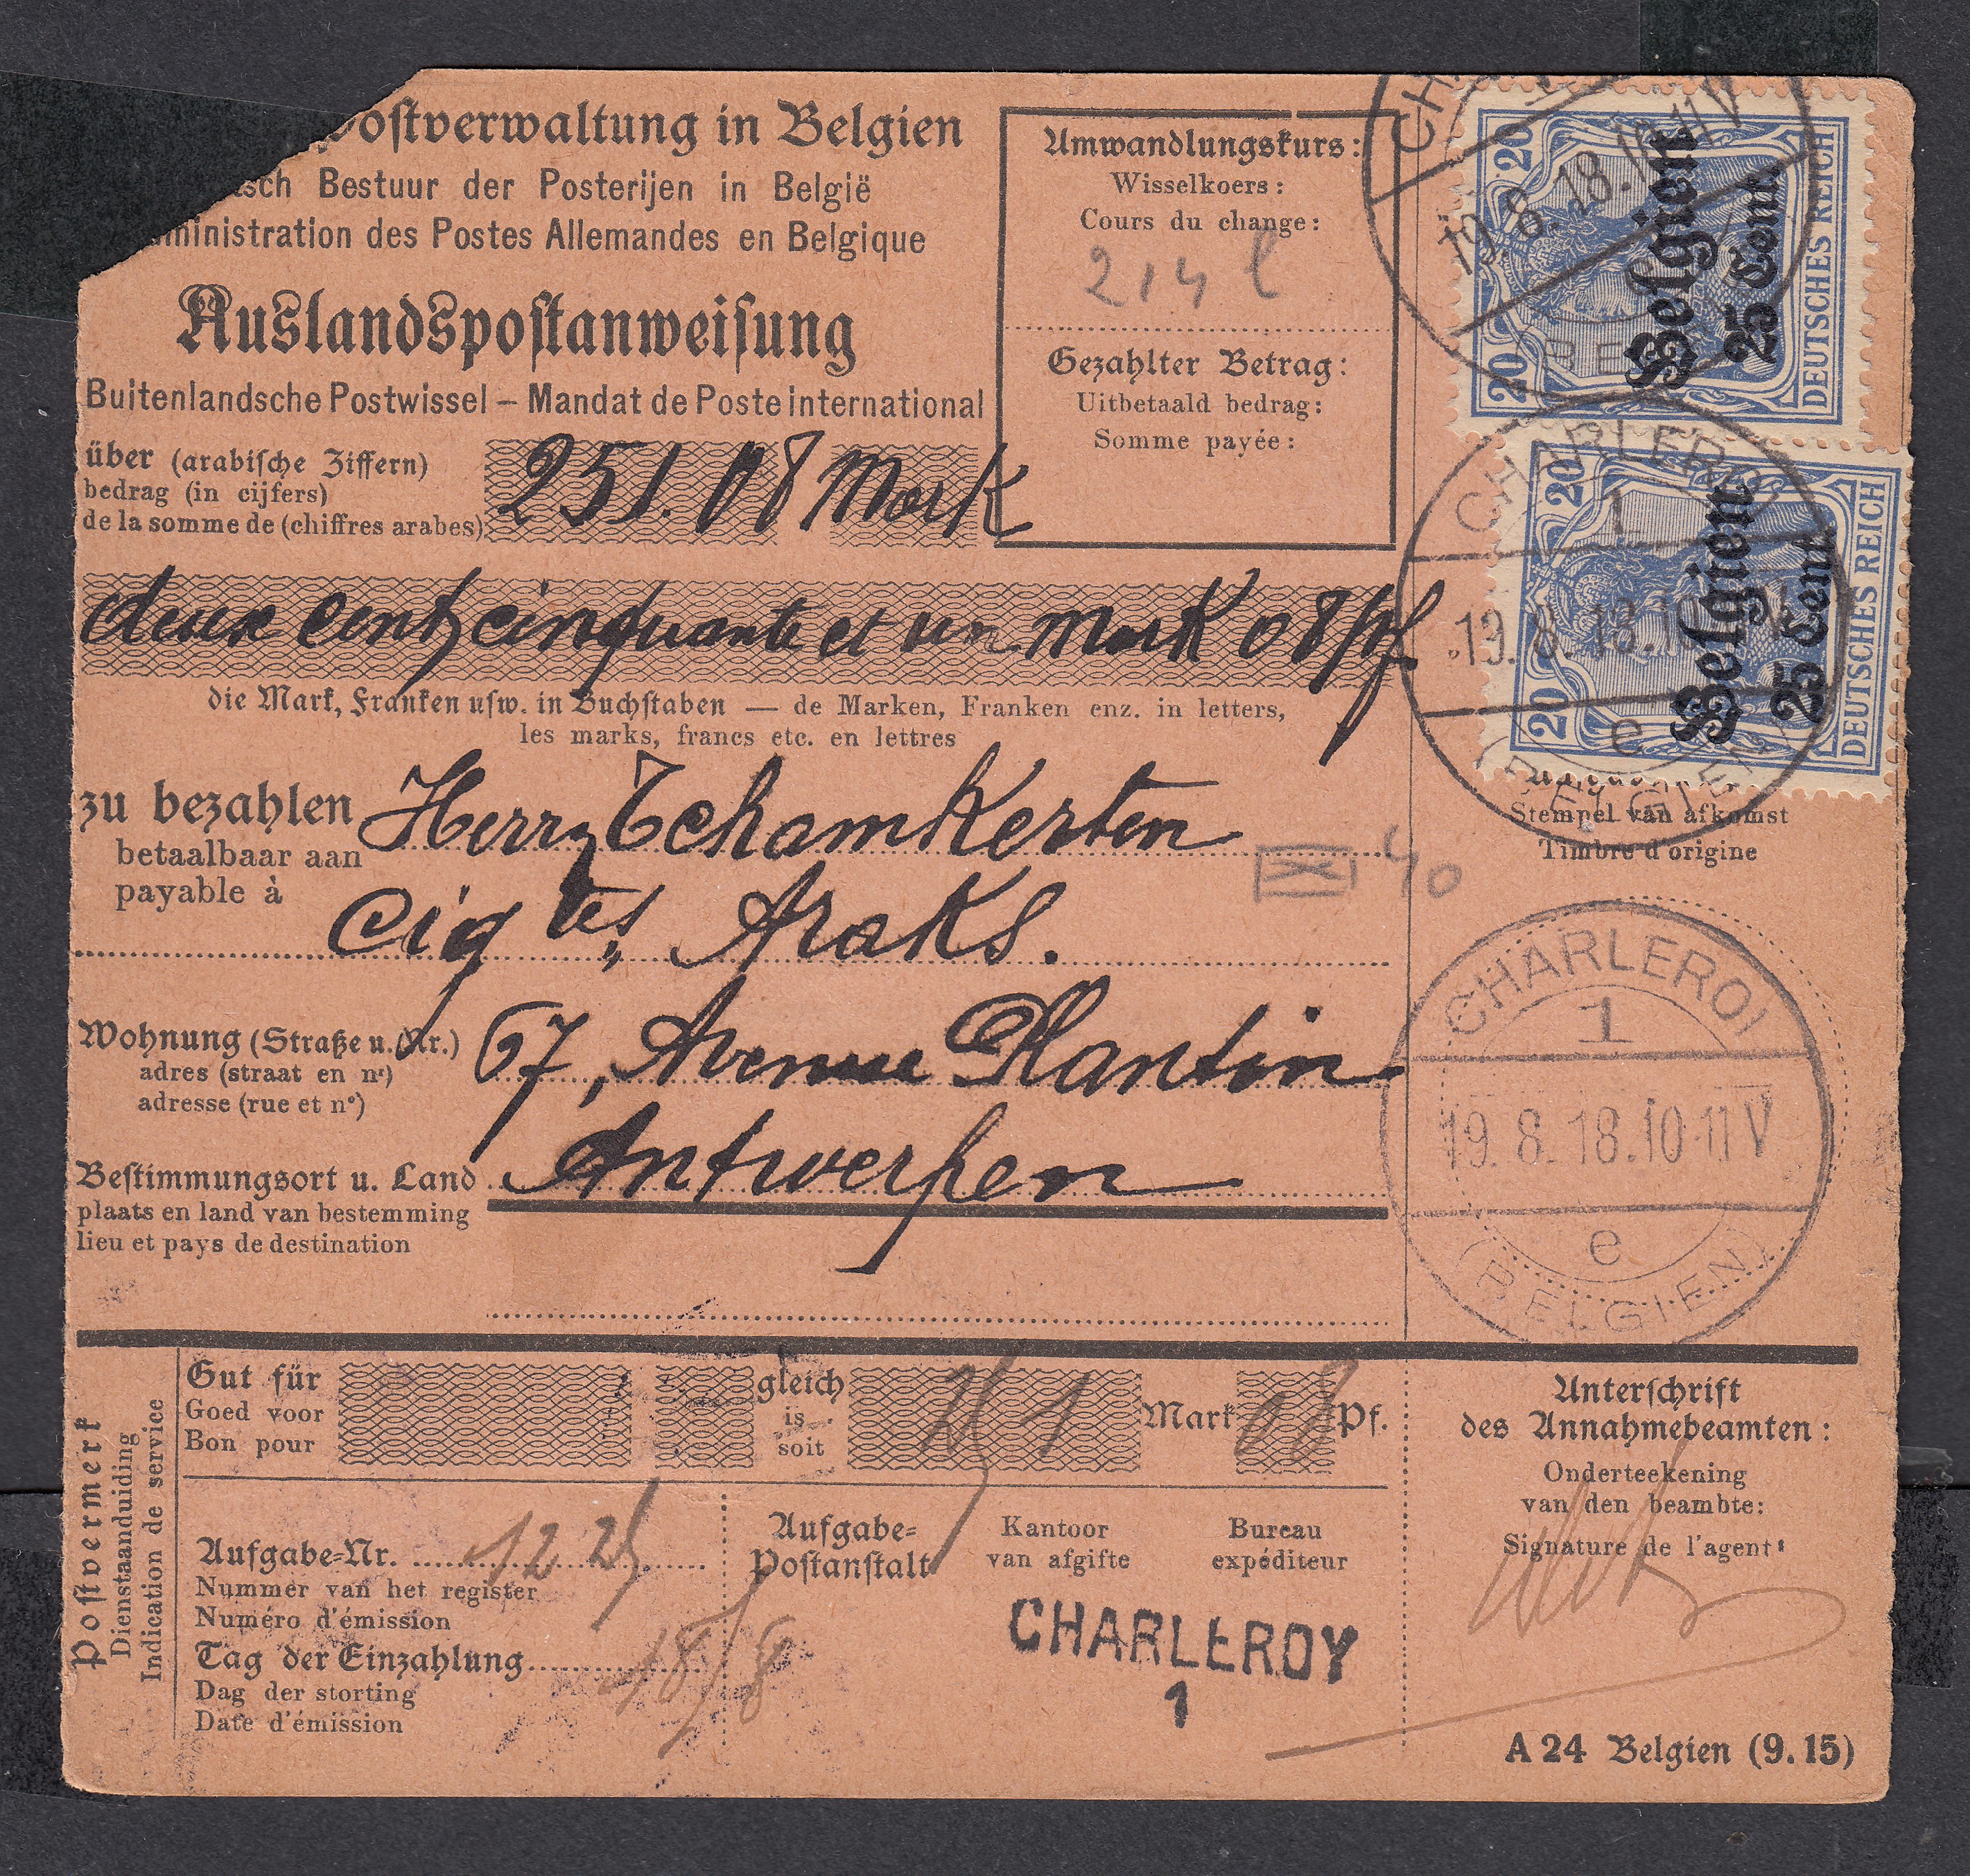 Postverwaltung in Belgien
tsch Bestuur der Posterijen in België
ministration des Postes Allemandes en Belgique
Auslandspostanweisung
Buitenlandsche Postwissel – Mandat de Poste international
über (arabische Ziffern)
bedrag (in cijfers)
de la somme de (chiffres arabes)
251.08 Mark
Umwandlungskurs:
Wisselkoers:
Cours du change:
214
Gezahlter Betrag:
Uitbetaald bedrag:
Somme payée:
deux cent cinquante et un mark 08 pf
die Mark, Franken usw. in Buchstaben — de Marken, Franken enz. in letters,
les marks, francs etc. en lettres
zu bezahlen
betaalbaar aan
payable à
Herr Tchamkerten
Cigtes Araks.
40
Wohnung (Straße u. Nr.)
adres (straat en nr)
adresse (rue et n°)
67, Avenue Plantin
Antwerpen
Bestimmungsort u. Land
plaats en land van bestemming
lieu et pays de destination
20 20
Belgien
25 Cent.
DEUTSCHES REICH
19.8.18.10-11V
20 20
Belgien
25 Cent.
DEUTSCHES REICH
CHARLEROI
1
19.8.18.10
e
(BELGIEN)
Stempel van afkomst
Timbre d'origine
CHARLEROI
1
19.8.18.10-11V
e
(BELGIEN)
Postvermerk
Dienstaanduiding
Indication de service
Gut für
Goed voor
Bon pour
gleich
is
soit
251
Mark
08
Pf.
Unterschrift
des Annahmebeamten:
Onderteekening
van den beambte:
Signature de l'agent:
Aufgabe-Nr.
Nummer van het register
Numéro d'émission
Tag der Einzahlung
Dag der storting
Date d'émission
Aufgabe-
Postanstalt
Kantoor
van afgifte
Bureau
expéditeur
CHARLEROY
1
A 24 Belgien (9.15)